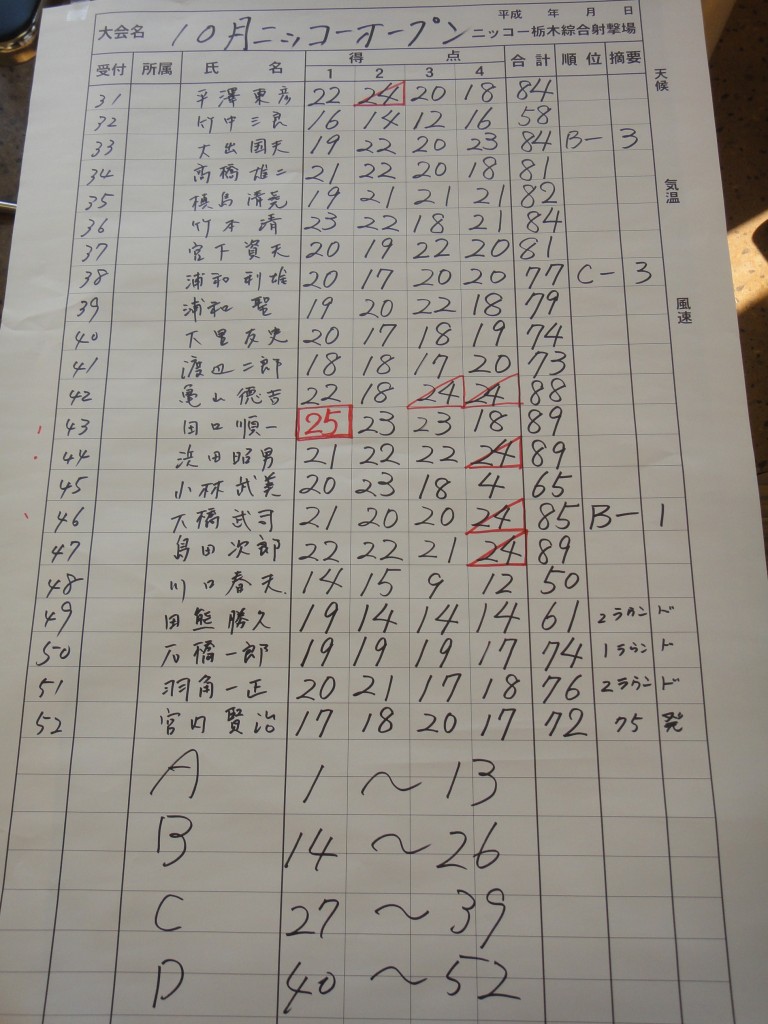 平成 年 月 日
大会名 10月ニッコーオープン ニッコー栃木綜合射撃場
受付 所属 氏名 得点 合計 順位 摘要 天候
1 2 3 4
31 平澤東彦 22 24 20 18 84
32 竹中三良 16 14 12 16 58
33 大出国夫 19 22 20 23 84 B-3
34 高橋雄二 21 22 20 18 81
35 槙島清堯 19 21 21 21 82 気温
36 竹本清 23 22 18 21 84
37 宮下資夫 20 19 22 20 81
38 浦和利雄 20 17 20 20 77 C-3
39 浦和聖 19 20 22 18 79 風速
40 大里友史 20 17 18 19 74
41 渡辺二郎 18 18 17 20 73
42 亀山徳吉 22 18 24 24 88
43 田口順一 25 23 23 18 89
44 浜田昭男 21 22 22 24 89
45 小林武美 20 23 18 4 65
46 大橋武司 21 20 20 24 85 B-1
47 島田次郎 22 22 21 24 89
48 川口春夫. 14 15 9 12 50
49 田熊勝久 19 14 14 14 61 2ラウンド
50 石橋一郎 19 19 19 17 74 1ラウンド
51 羽角一正 20 21 17 18 76 2ラウンド
52 宮内賢治 17 18 20 17 72 75発
A 1〜13
B 14〜26
C 27〜39
D 40〜52